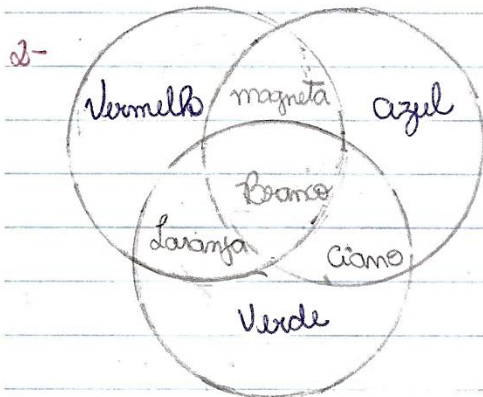 2-
Vermelho magneta azul
Branco
Laranja Ciano
Verde